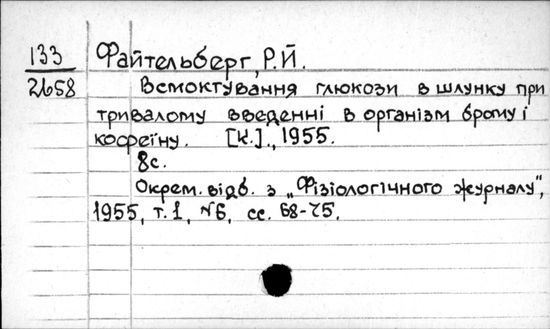 133 Файтельберг, Р.Й.
2658 Всмоктування глюкози в шлунку при
тривалому введенні в організм брому і
кофеїну. [К.]., 1955.
8с.
Окрем. відб. з „Фізіологічного журналу",
1955, т.1, №6, сс. 68-75.